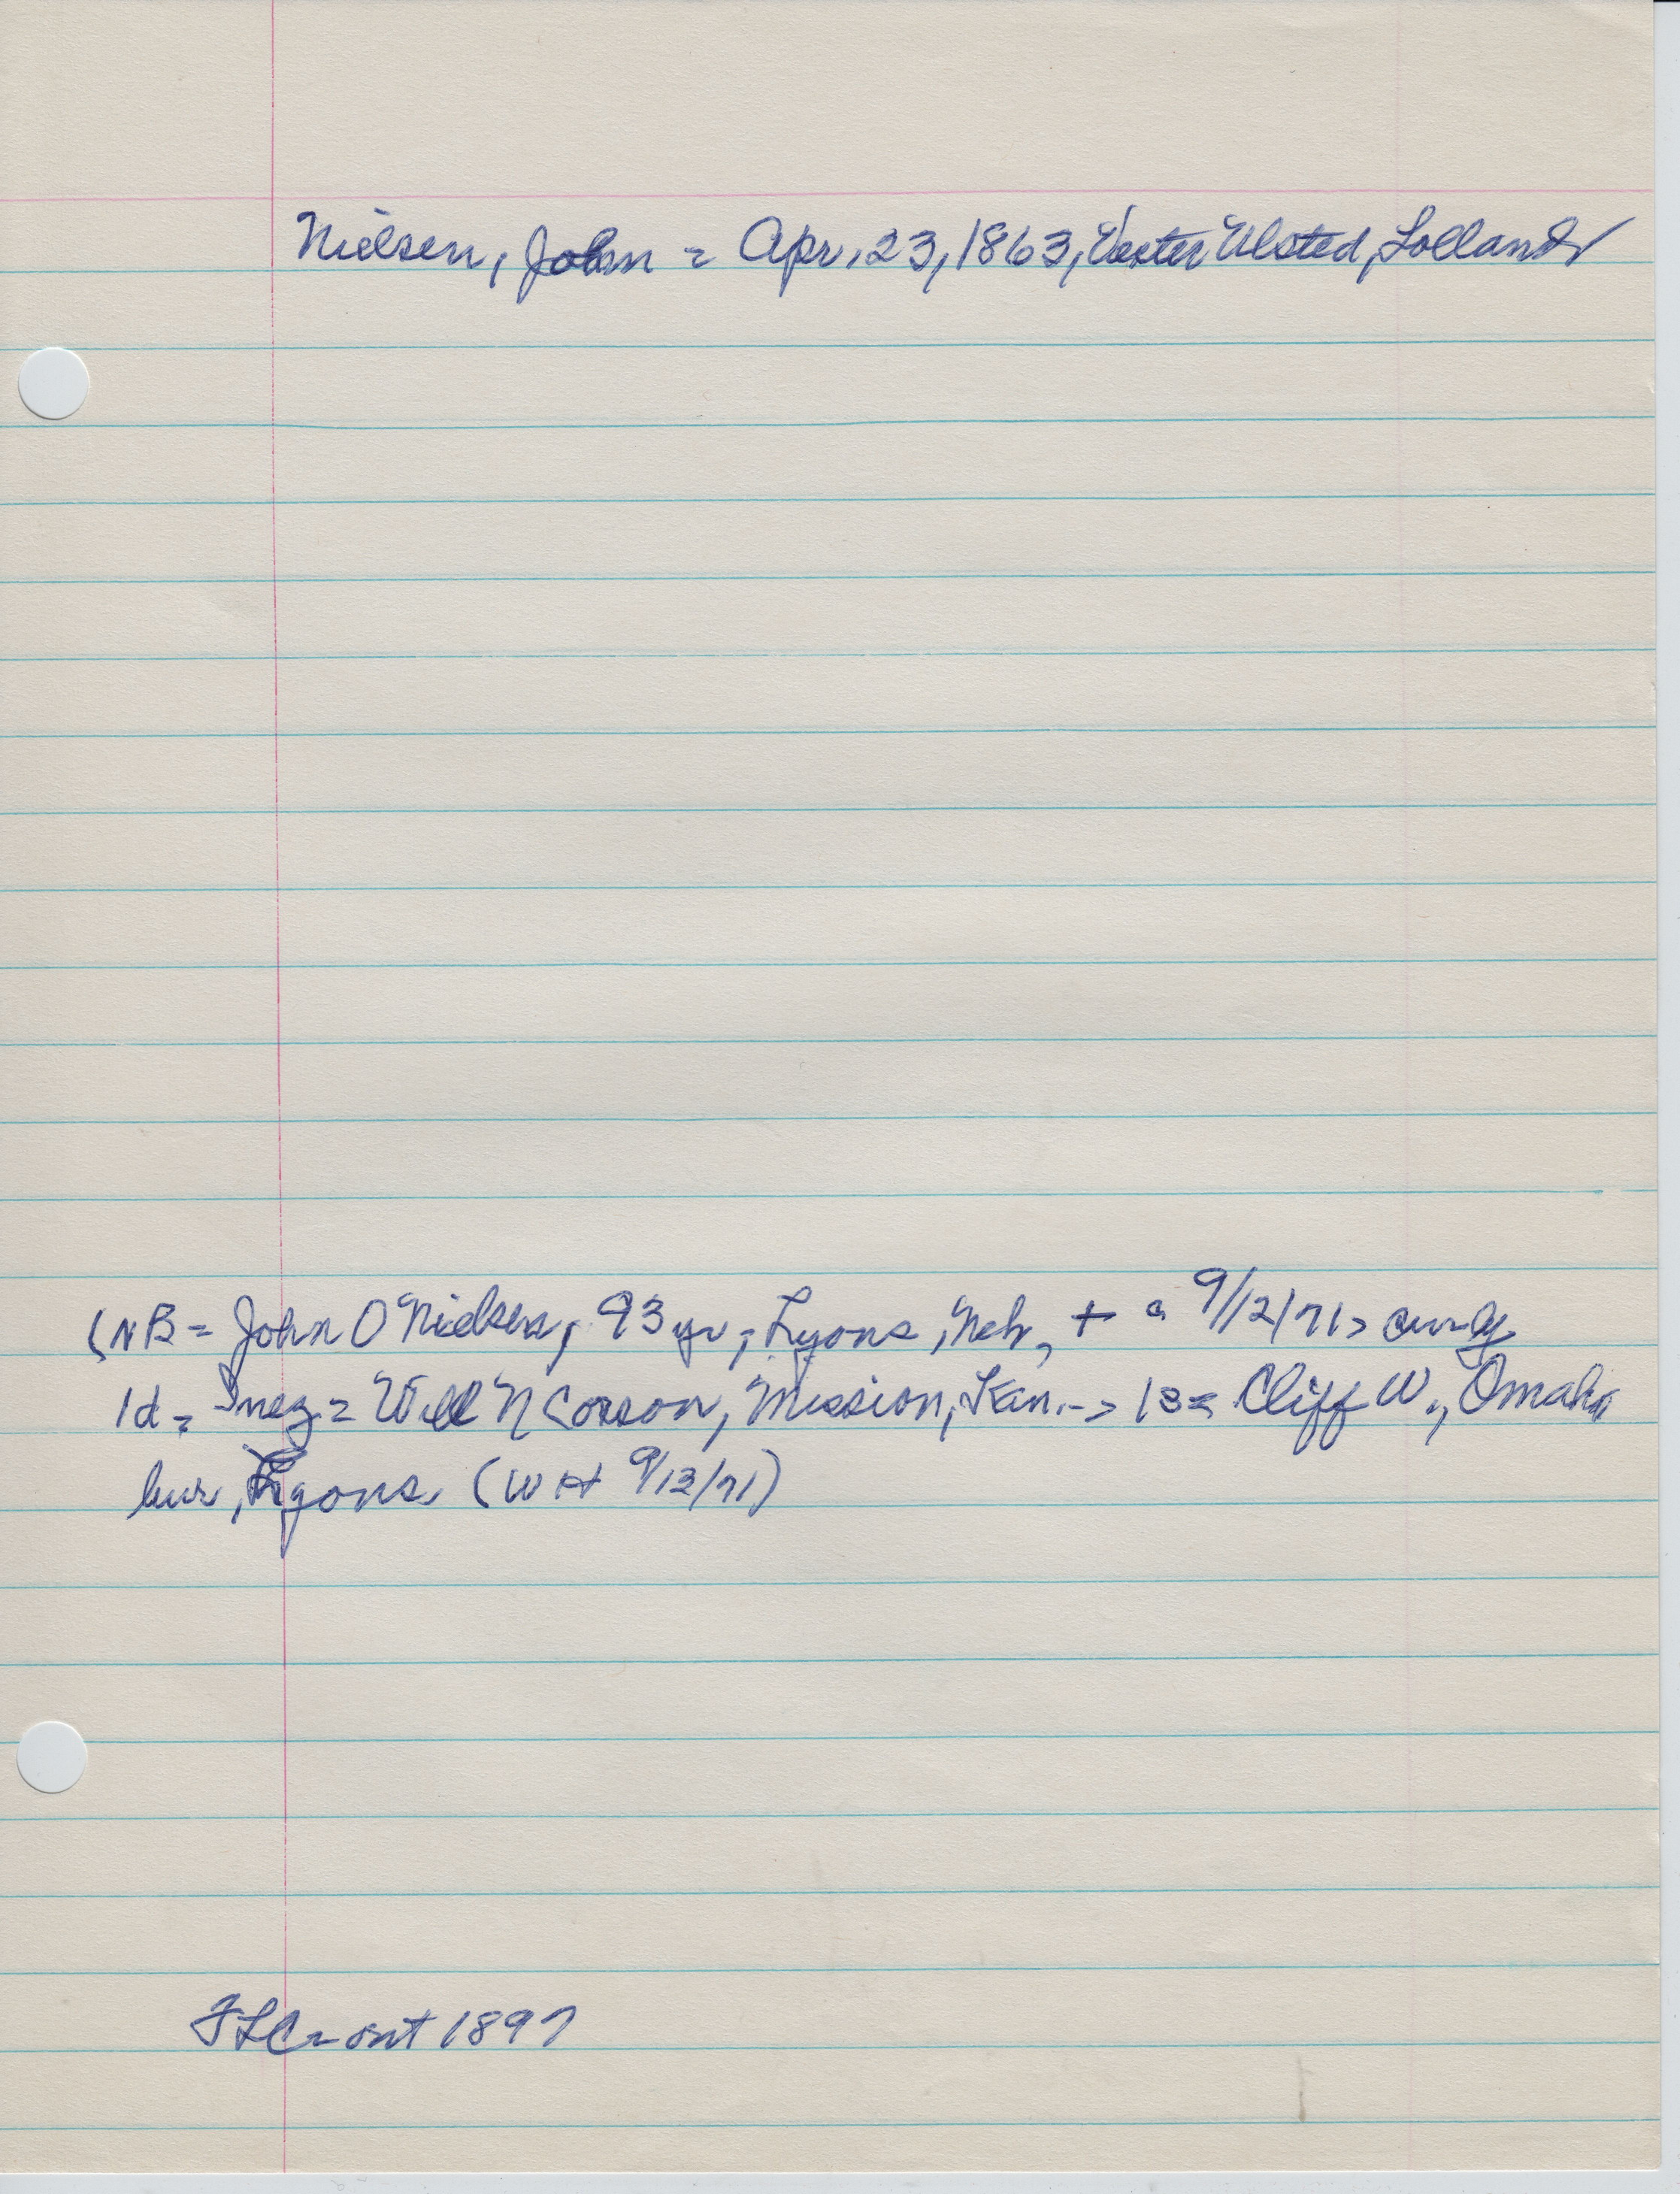 Nielsen, John = Apr. 23, 1863, Vester Ulsted, Lolland
(NB = John O Nielsen, 93 yr, Lyons, Neb, + a 9/12/71,
1d = Inez = Will N Corson, Mission, Kan. -> 1s = Cliff W., Omaha
bur, Lyons (WH 9/13/71)
FLC = ont 1897